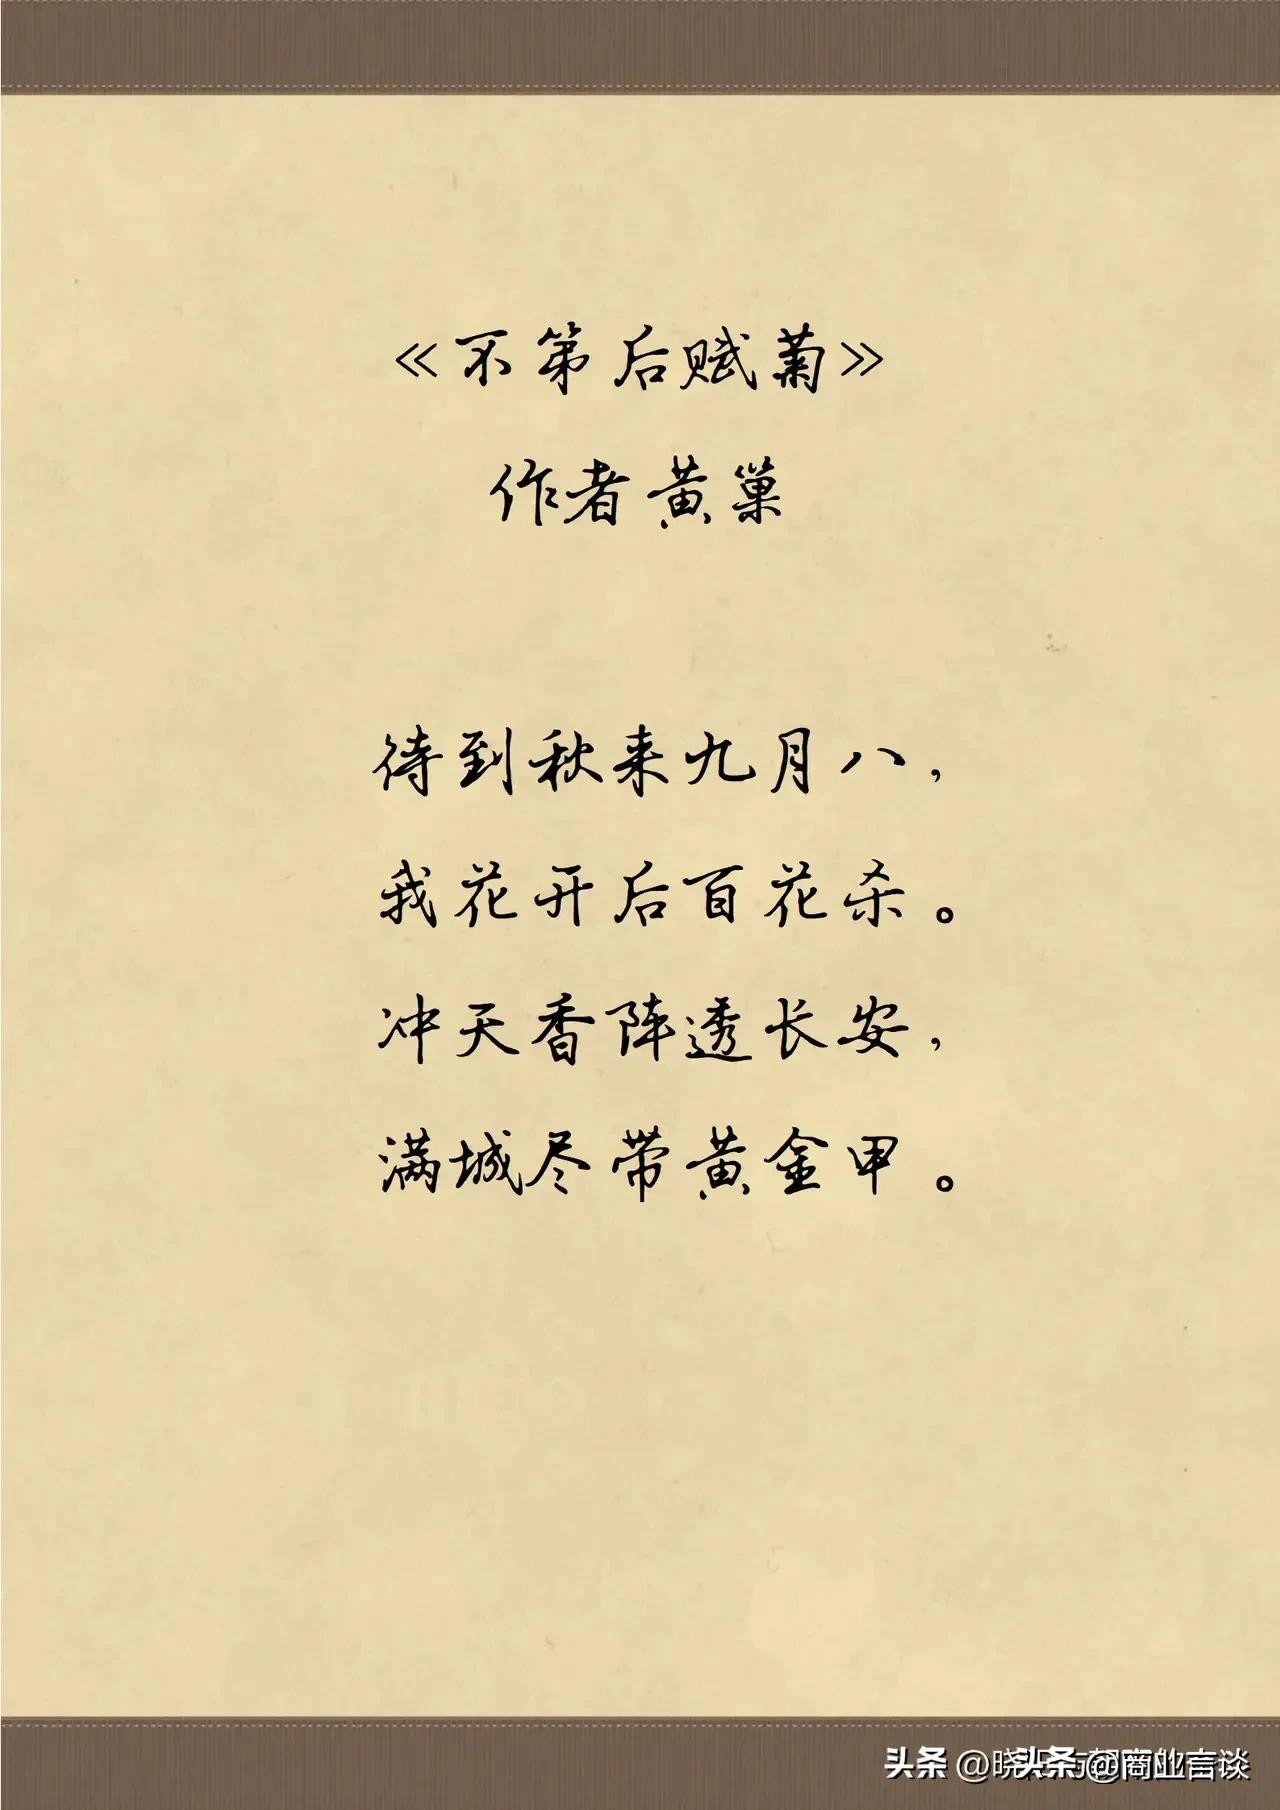 《不第后赋菊》
作者黄巢
待到秋来九月八，
我花开后百花杀。
冲天香阵透长安，
满城尽带黄金甲。
头条 @晓 头条 @商业言谈